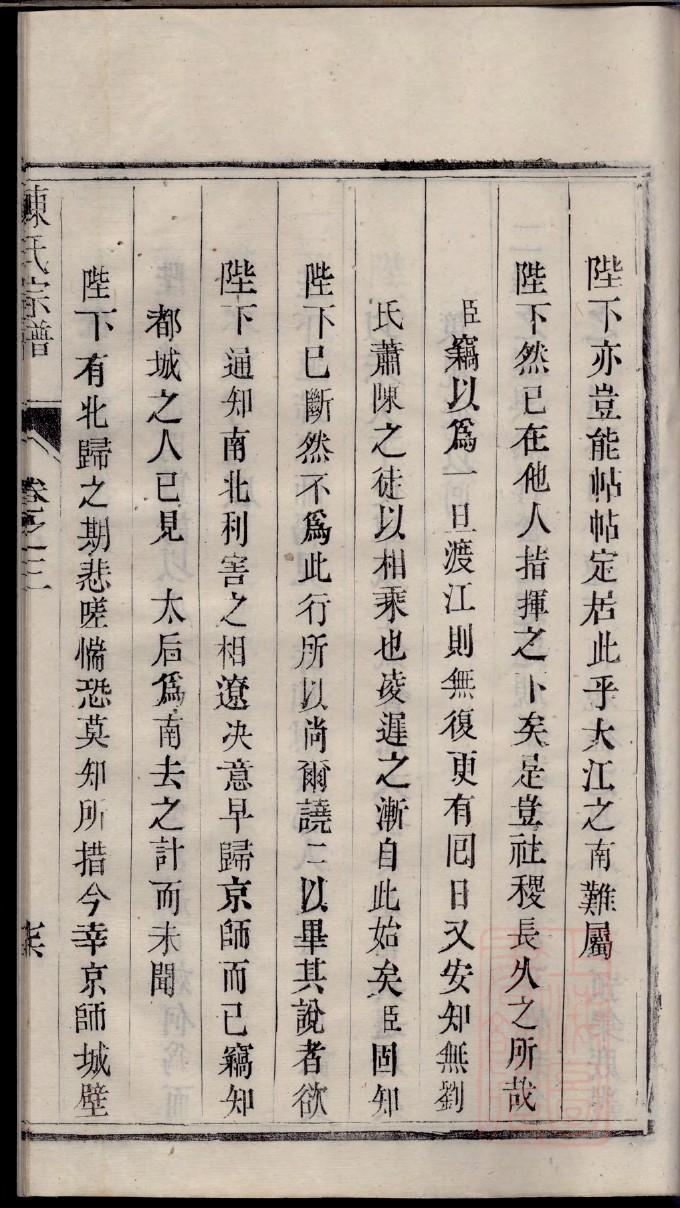 陛下亦豈能帖帖定居此乎大江之南難屬
陛下然已在他人指揮之下矣是豈社稷長久之所哉
臣竊以爲一旦渡江則無復更有囘日又安知無劉
氏蕭陳之徒以相乘也凌遲之漸自此始矣臣固知
陛下已斷然不爲此行所以尚爾譊二以畢其說者欲
陛下通知南北利害之相遼決意早歸京師而已竊知
都城之人已見 太后爲南去之計而未聞
陛下有北歸之期悲嗟惴恐莫知所措今幸京師城壁
陳氏宗譜 卷之三